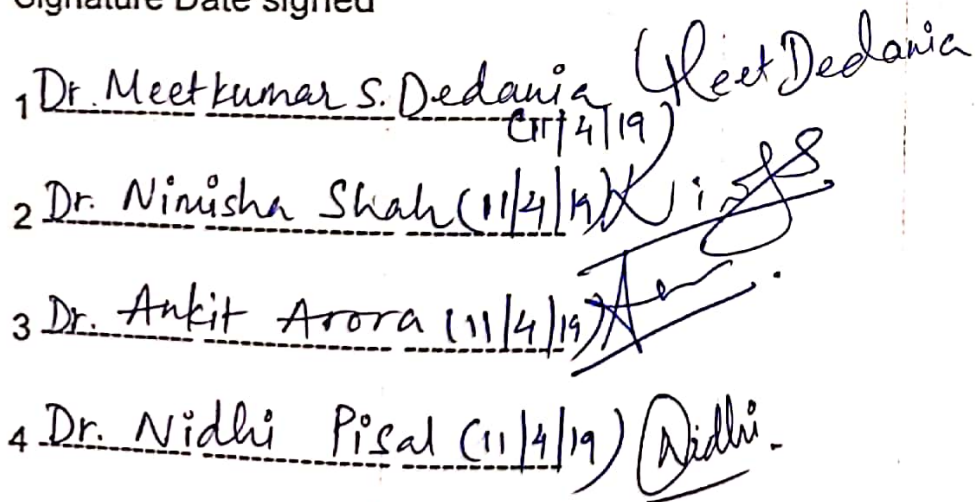 Signature Date signed
1 Dr. Meetkumar S. Dedania Meet Dedania
(11/4/19)
2 Dr. Nimisha Shah (11/4/19)
3 Dr. Ankit Arora (11/4/19)
4 Dr. Nidhi Pisal (11/4/19) Nidhi.